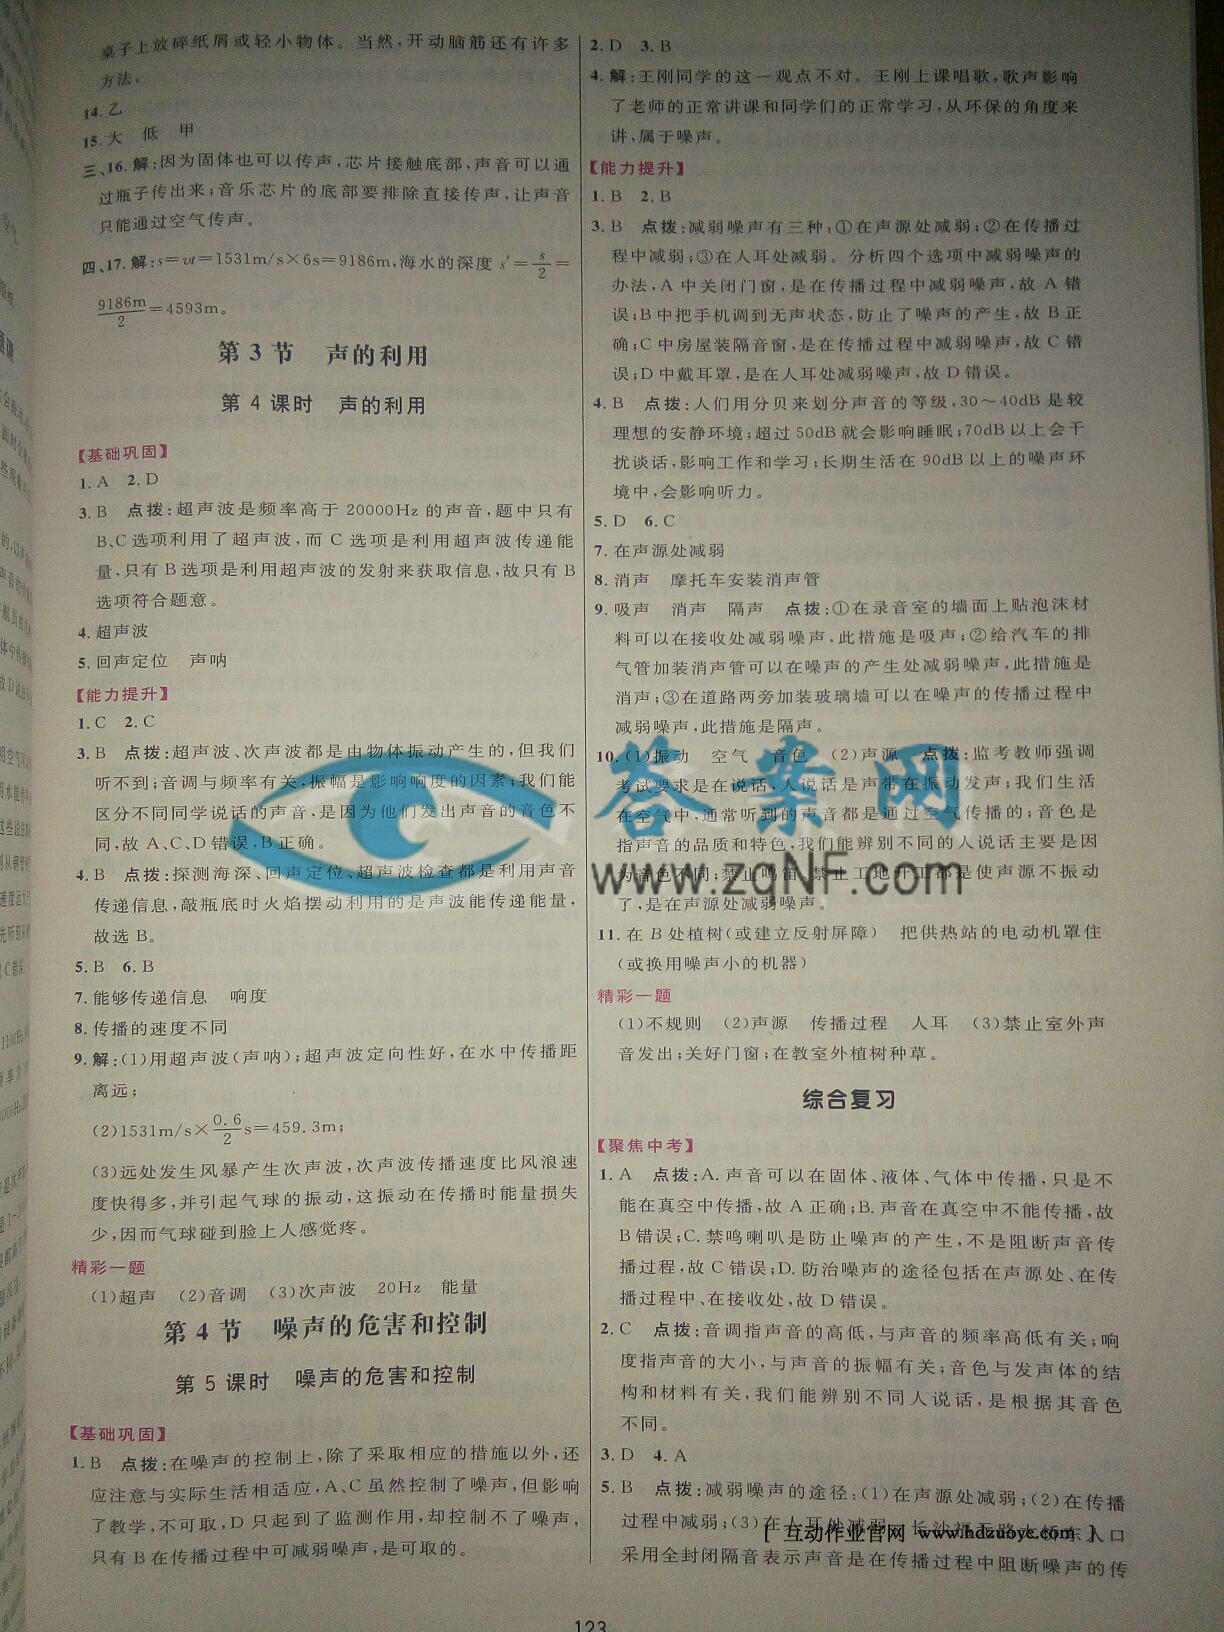 桌子上放碎纸屑或轻小物体。当然,开动脑筋还有许多
方法。
14.乙
15.大 低 甲
三、16.解:因为固体也可以传声,芯片接触底部,声音可以通
过瓶子传出来;音乐芯片的底部要排除直接传声,让声音
只能通过空气传声。
四、17.解:s=vt=1531m/s×6s=9186m,海水的深度 s′=s/2=
9186m/2=4593m。
第3节 声的利用
第4课时 声的利用
【基础巩固】
1.A 2.D
3.B 点拨:超声波是频率高于20000Hz的声音,题中只有
B、C选项利用了超声波,而C选项是利用超声波传递能
量,只有B选项是利用超声波的发射来获取信息,故只有B
选项符合题意。
4.超声波
5.回声定位 声呐
【能力提升】
1.C 2.C
3.B 点拨:超声波、次声波都是由物体振动产生的,但我们
听不到;音调与频率有关,振幅是影响响度的因素;我们能
区分不同同学说话的声音,是因为他们发出声音的音色不
同,故A、C、D错误,B正确。
4.B 点拨:探测海深、回声定位、超声波检查都是利用声音
传递信息,敲瓶底时火焰摆动利用的是声波能传递能量,
故选B。
5.B 6.B
7.能够传递信息 响度
8.传播的速度不同
9.解:(1)用超声波(声呐);超声波定向性好,在水中传播距
离远;
(2)1531m/s×0.6/2s=459.3m;
(3)远处发生风暴产生次声波,次声波传播速度比风浪速
度快得多,并引起气球的振动,这振动在传播时能量损失
少,因而气球碰到脸上人感觉疼。
精彩一题
(1)超声 (2)音调 (3)次声波 20Hz 能量
第4节 噪声的危害和控制
第5课时 噪声的危害和控制
【基础巩固】
1.B 点拨:在噪声的控制上,除了采取相应的措施以外,还
应注意与实际生活相适应,A、C虽然控制了噪声,但影响
了教学,不可取,D只起到了监测作用,却控制不了噪声,
只有B在传播过程中可减弱噪声,是可取的。
2.D 3.B
4.解:王刚同学的这一观点不对。王刚上课唱歌,歌声影响
了老师的正常讲课和同学们的正常学习,从环保的角度来
讲,属于噪声。
【能力提升】
1.B 2.B
3.B 点拨:减弱噪声有三种:①在声源处减弱;②在传播过
程中减弱;③在人耳处减弱。分析四个选项中减弱噪声的
办法,A中关闭门窗,是在传播过程中减弱噪声,故A错
误;B中把手机调到无声状态,防止了噪声的产生,故B正
确;C中房屋装隔音窗,是在传播过程中减弱噪声,故C错
误;D中戴耳罩,是在人耳处减弱噪声,故D错误。
4.B 点拨:人们用分贝来划分声音的等级,30～40dB是较
理想的安静环境;超过50dB就会影响睡眠;70dB以上会干
扰谈话,影响工作和学习;长期生活在90dB以上的噪声环
境中,会影响听力。
5.D 6.C
7.在声源处减弱
8.消声 摩托车安装消声管
9.吸声 消声 隔声 点拨:①在录音室的墙面上贴泡沫材
料可以在接收处减弱噪声,此措施是吸声;②给汽车的排
气管加装消声管可以在噪声的产生处减弱噪声,此措施是
消声;③在道路两旁加装玻璃墙可以在噪声的传播过程中
减弱噪声,此措施是隔声。
10.(1)振动 空气 音色 (2)声源 点拨:监考教师强调
考试要求是在说话,人说话是声带在振动发声;我们生活
在空气中,通常听到的声音都是通过空气传播的;音色是
指声音的品质和特色,我们能辨别不同的人说话主要是因
为音色不同;禁止鸣笛、禁止工地开工都是使声源不振动
了,是在声源处减弱噪声。
11.在B处植树(或建立反射屏障) 把供热站的电动机罩住
(或换用噪声小的机器)
精彩一题
(1)不规则 (2)声源 传播过程 人耳 (3)禁止室外声
音发出;关好门窗;在教室外植树种草。
综合复习
【聚焦中考】
1.A 点拨:A.声音可以在固体、液体、气体中传播,只是不
能在真空中传播,故A正确;B.声音在真空中不能传播,故
B错误;C.禁鸣喇叭是防止噪声的产生,不是阻断声音传
播过程,故C错误;D.防治噪声的途径包括在声源处、在传
播过程中、在接收处,故D错误。
2.C 点拨:音调指声音的高低,与声音的频率高低有关;响
度指声音的大小,与声音的振幅有关;音色与发声体的结
构和材料有关,我们能辨别不同人说话,是根据其音色
不同。
3.D 4.A
5.B 点拨:减弱噪声的途径:(1)在声源处减弱;(2)在传播
过程中减弱;(3)在人耳处减弱。长沙福元路大桥东入口
采用全封闭隔音表示声音是在传播过程中阻断噪声的传
123
答案网
www.zqNF.com
[ 互动作业官网 www.hdzuoye.com ]